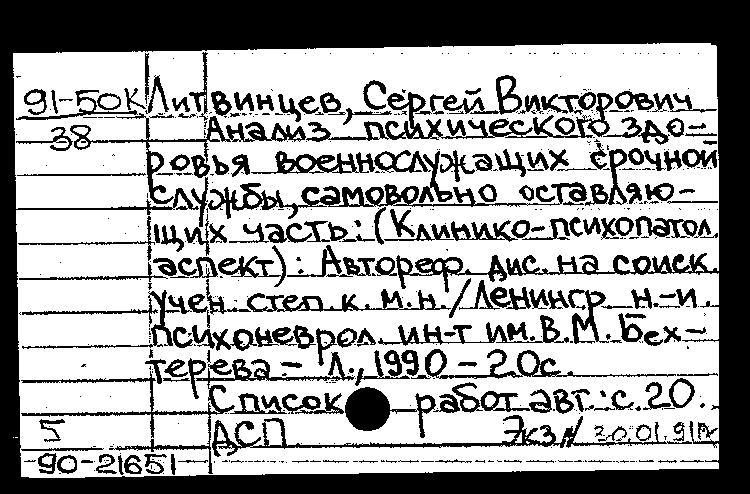 91-50К Литвинцев, Сергей Викторович
38 Анализ психического здо-
ровья военнослужащих срочной
службы, самовольно оставляю-
щих часть: (Клинико-психопатол.
аспект): Автореф. дис. на соиск.
учен. степ. к. м. н. / Ленингр. н.-и.
психоневрол. ин-т им. В. М. Бех-
терева - Л., 1990 - 20с.
Список работ авт.: с. 20.
5 ДСП Экз N 30.01.91
90-21651